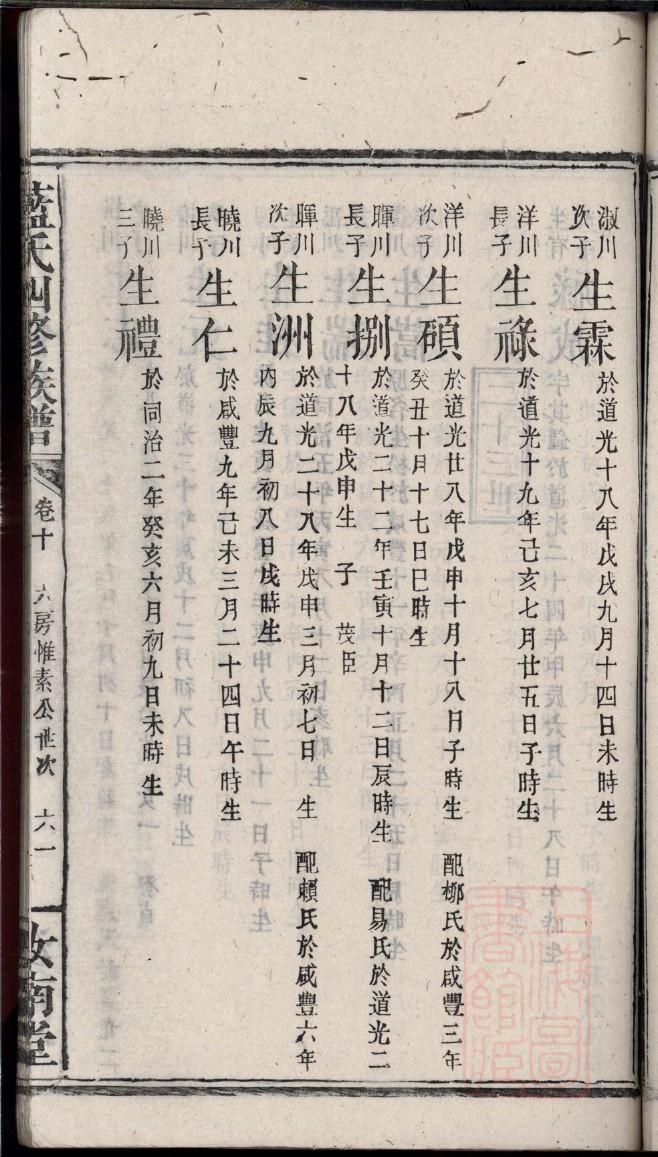 淑川
次子
生霖
於道光十八年戊戌九月十四日未時生
洋川
長子
生祿
於道光十九年己亥七月廿五日子時生
洋川
次子
生碩
於道光廿八年戊申十月十八日子時生 配栁氏於咸豐三年
癸丑十月十七日巳時生
暉川
長子
生捌
於道光二十二年壬寅十月十二日辰時生 配易氏於道光二
十八年戊申生 子 茂臣
暉川
次子
生洲
於道光二十八年戊申三月初七日 生 配賴氏於咸豐六年
丙辰九月初八日戌時生
曉川
長子
生仁
於咸豐九年己未三月二十四日午時生
曉川
三子
生禮
於同治二年癸亥六月初九日未時生
藍氏四修族譜
卷十 六房惟素公世次 六一
汝南堂
上海圖
書館臧